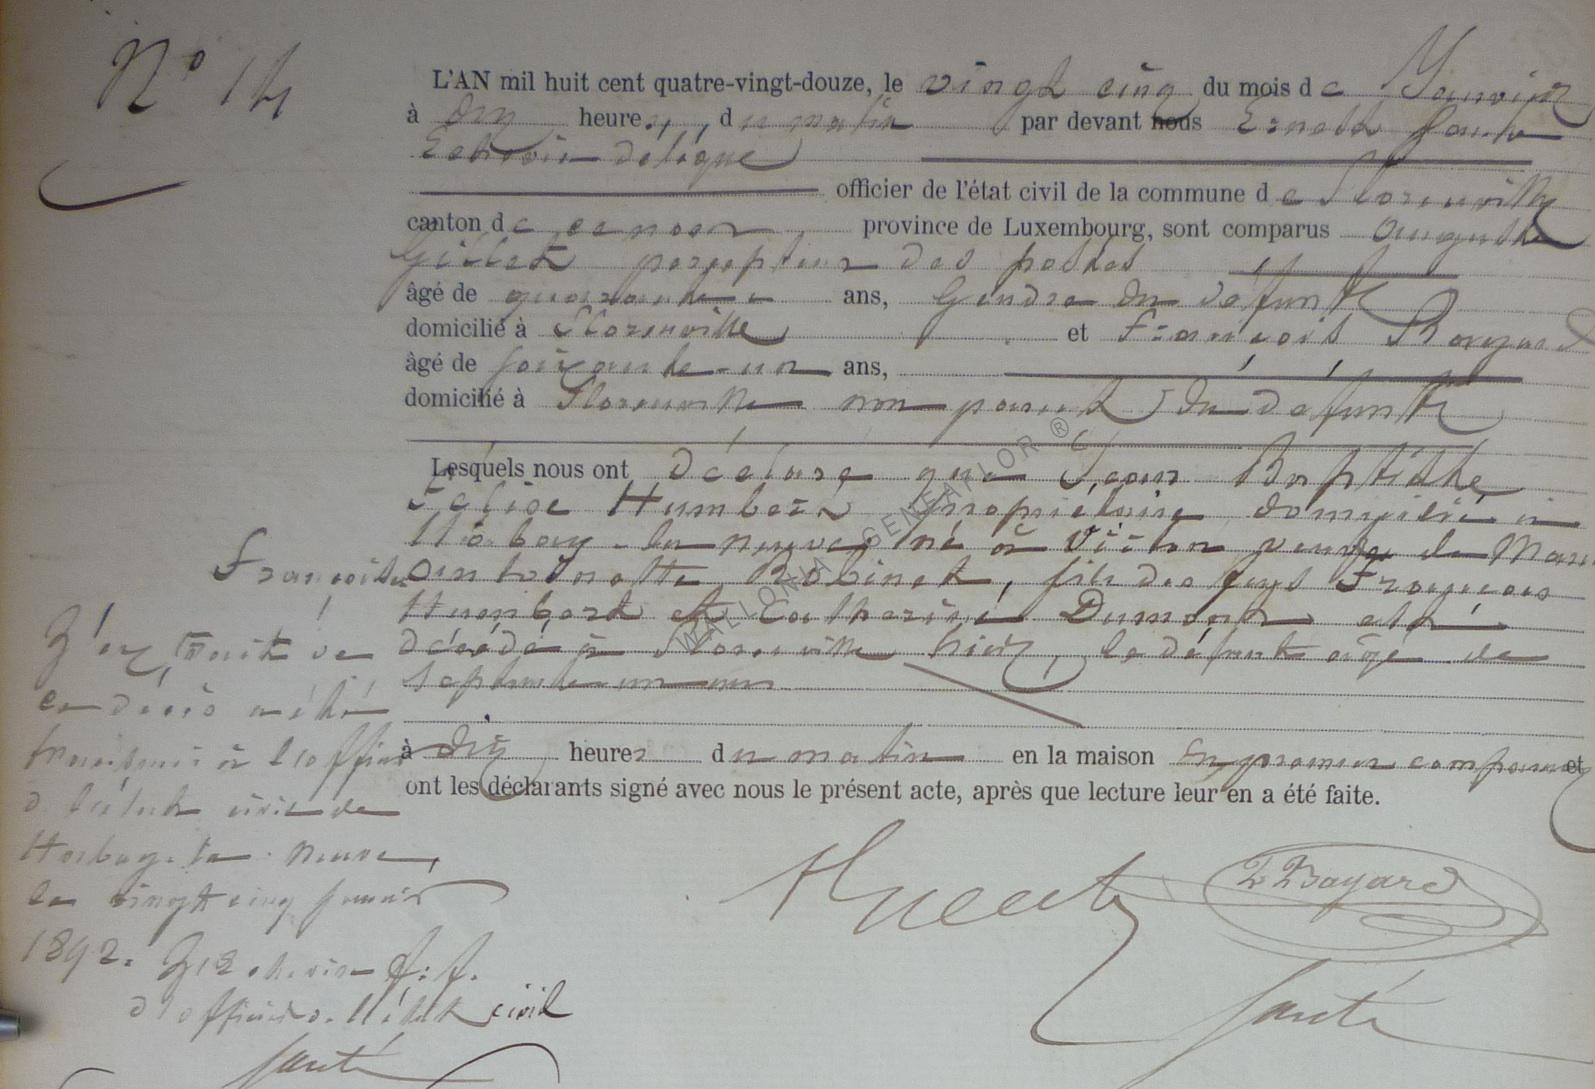 N° 14
L'AN mil huit cent quatre-vingt-douze, le vingt cinq du mois de Janvier
à dix heures, du matin par devant nous Ernest Santé
Echevin délégué
officier de l'état civil de la commune de Florenville
canton de ce nom province de Luxembourg, sont comparus Auguste
Gillet percepteur des postes
âgé de quarante ans, Gendre du défunt
domicilié à Florenville et François Bayard
âgé de soixante-un ans,
domicilié à Florenville non parent du défunt
Lesquels nous ont déclaré que Jean Baptiste
Eglise Humbert, propriétaire domicilié à
Habay-la-neuve né à Virton veuf de Marie
antoinette Robinet, fils des feus François
Humbert et Catherine Dumont est
décédé à Florenville hier, le défunt agé de
septante-un ans
à dix heures du matin en la maison et
ont les déclarants signé avec nous le présent acte, après que lecture leur en a été faite.
Françoise
ce décès a été
transmis à l'officier
d l'état civil de
Habay-la-Neuve,
le vingt cinq janvier
1892. L'Echevin f.f.
d'officier d. l'état civil
Santé
F Bayard
Santé
WALLONIA GENEAFLOR ®